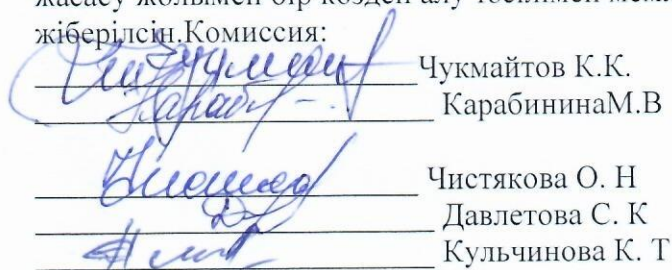 жасасу жолымен бір көзден алу тәсілімен
жіберілсін.Комиссия:
Чукмайтов К.К.
КарабининаМ.В
Чистякова О. Н
Давлетова С. К
Кульчинова К. Т